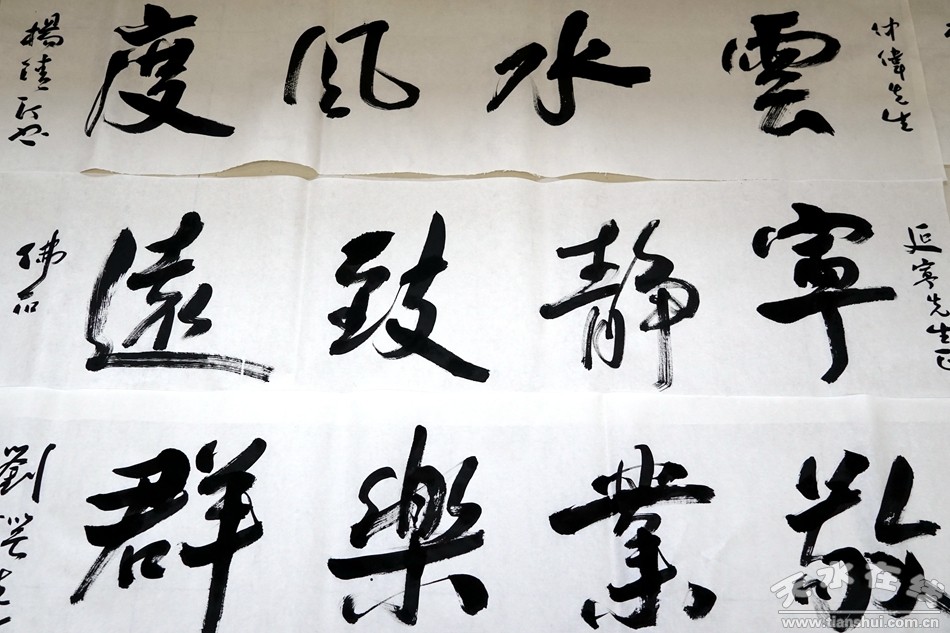 雲水風度
先生
寧靜致遠
延寧先生正
佛石
敬業樂群
劉
天水在线
www.tianshui.com.cn